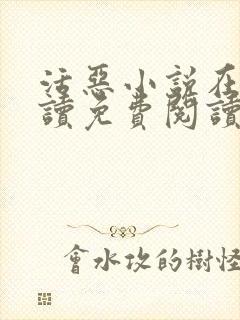 活惡小說在
讀免費閱讀
會水攻的樹怪